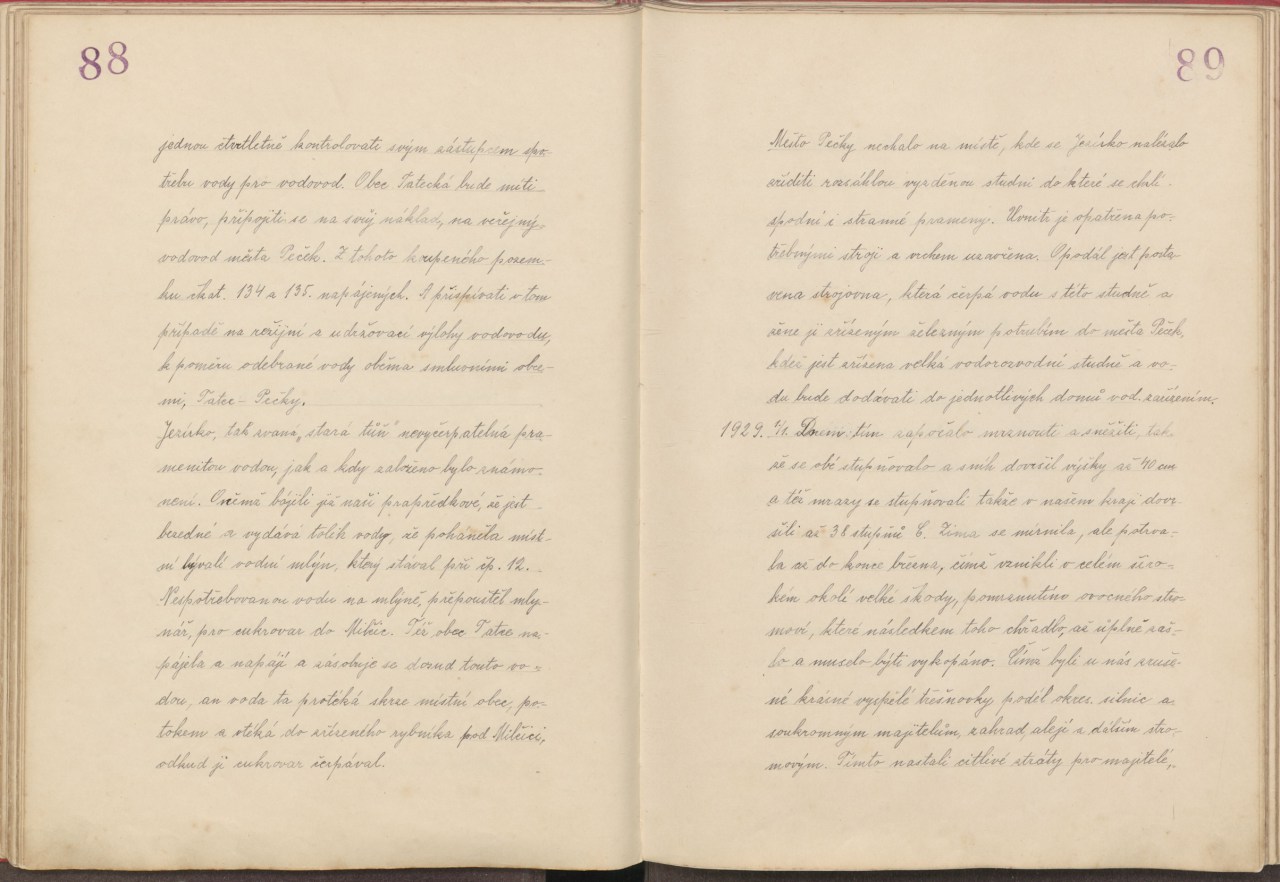 88
jednou čtvrtletně kontrolovati svým zástupcem spo-
třebu vody pro vodovod. Obec Tatecká bude míti
právo, připojiti se na svůj náklad, na veřejný
vodovod města Peček. Z tohoto kupeného pozem-
ku čkat. 134 a 135. napájených. A přispívati v tom
případě na režijní a udržovací výlohy vodovodu,
k poměru odebrané vody oběma smluvními obce-
mi, Tatce - Pečky.
Jezírko, tak zvaná „stará tůň" nevyčerpatelná pra-
menitou vodou, jak a kdy založeno bylo známo
není. O němž bájili již naši prapředkové, že jest
bezedné a vydává tolik vody, že poháněla míst-
ní bývalí vodní mlýn, který stával při čp. 12.
Nespotřebovanou vodu na mlýně, přepouštěl mly-
nář, pro cukrovar do Milčic. Též obec Tatce na-
pájela a napájí a zásobuje se dosud touto vo-
dou, an voda ta protéká skrze místní obec, po-
tokem a vtéká do zřízeného rybníka pod Milčicí,
odkud ji cukrovar čerpával.
89
Město Pečky nechalo na místě, kde se Jezírko nalézalo
zříditi rozsáhlou vyzděnou studni do které se chrlí
spodní i stranné prameny. Uvnitř je opatřena po-
třebnými stroji a vrchem uzavřena. Opodál jest posta
vena strojovna, která čerpá vodu s této studně a
žene ji zřízeným železným potrubím do města Peček,
kdež jest zřízena velká vodorozvodní studně a vo-
du bude dodávati do jednotlivých domů vod. zařízením.
1929. 1/1. Dnem tím započalo mrznouti a sněžiti, tak
že se obé stupňovalo a sníh dovršil výšky až 40 cm
a též mrazy se stupňovali takže v našem kraji dovr
šili až 38 stupňů C. Zima se mírnila, ale potrva-
la až do konce března, čímž vznikli v celém širo-
kém okolí velké škody, pomrznutím ovocného stro
moví, které následkem toho chřadlo, až úplně zaš-
lo a muselo býti vykopáno. Čímž byli u nás zniče-
né krásné vyspělé třešňovky podél okres. silnic a
soukromným majitelům, zahrad, alejí s dalším stro-
movým. Tímto nastali citlivé ztráty pro majitelé,